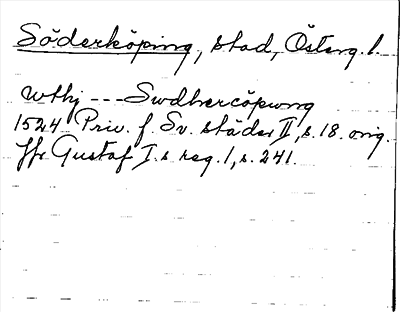 Söderköping, stad, Österg. l.
wthj --- Swdhercöpung
1524 Priv. f. Sv. städer II, s. 18. orig.
Jfr Gustaf I.s reg. 1, s. 241.